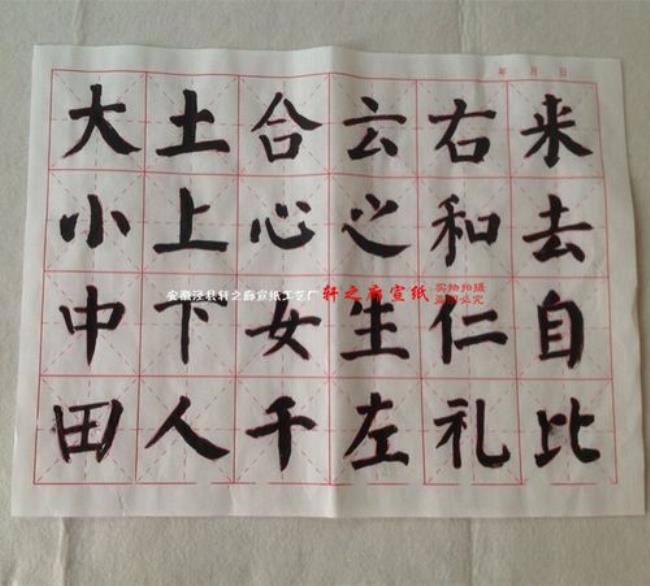 年 月 日
大 土 合 云 右 来
小 上 心 之 和 去
中 下 女 生 仁 自
田 人 千 左 礼 比
安徽泾县轩之廊宣纸工艺厂 轩之廊宣纸 实物拍摄
盗图必究